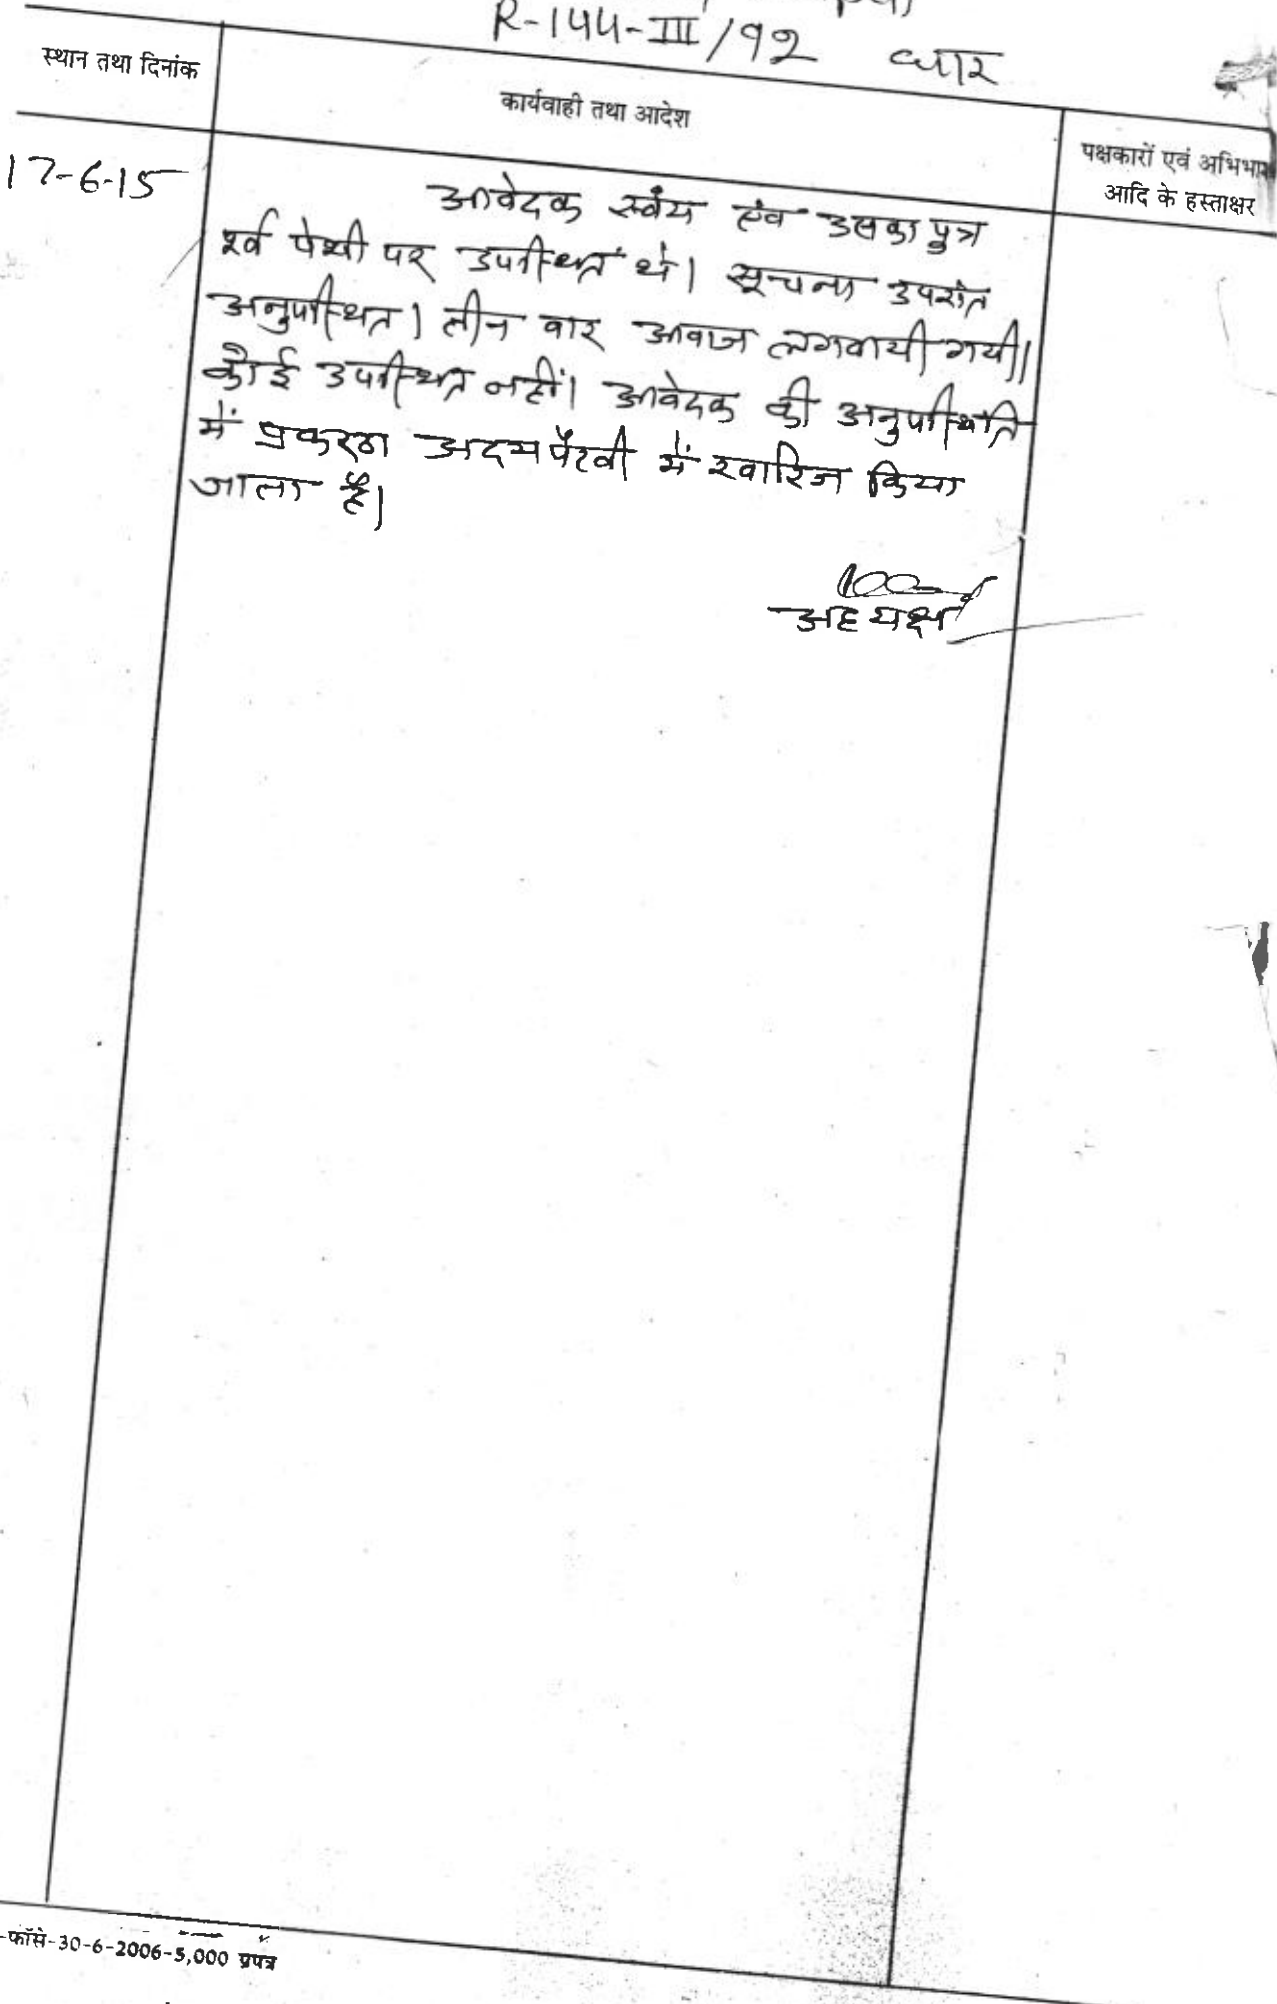 R-144-III/92 धार
स्थान तथा दिनांक
कार्यवाही तथा आदेश
पक्षकारों एवं अभिभा
आदि के हस्ताक्षर
17-6-15
आवेदक स्वंय एंव उसका पुत्र
पेशी पर उपस्थित थे। सूचना उपरांत
अनुपस्थित। तीन वार आवाज लगवायी गयी।
कोई उपस्थित नहीं। आवेदक की अनुपस्थिति
में प्रकरण अदमपैरवी में खारिज किया
जाता है।
अध्यक्ष
-फॉर्स-30-6-2006-5,000 प्रपत्र